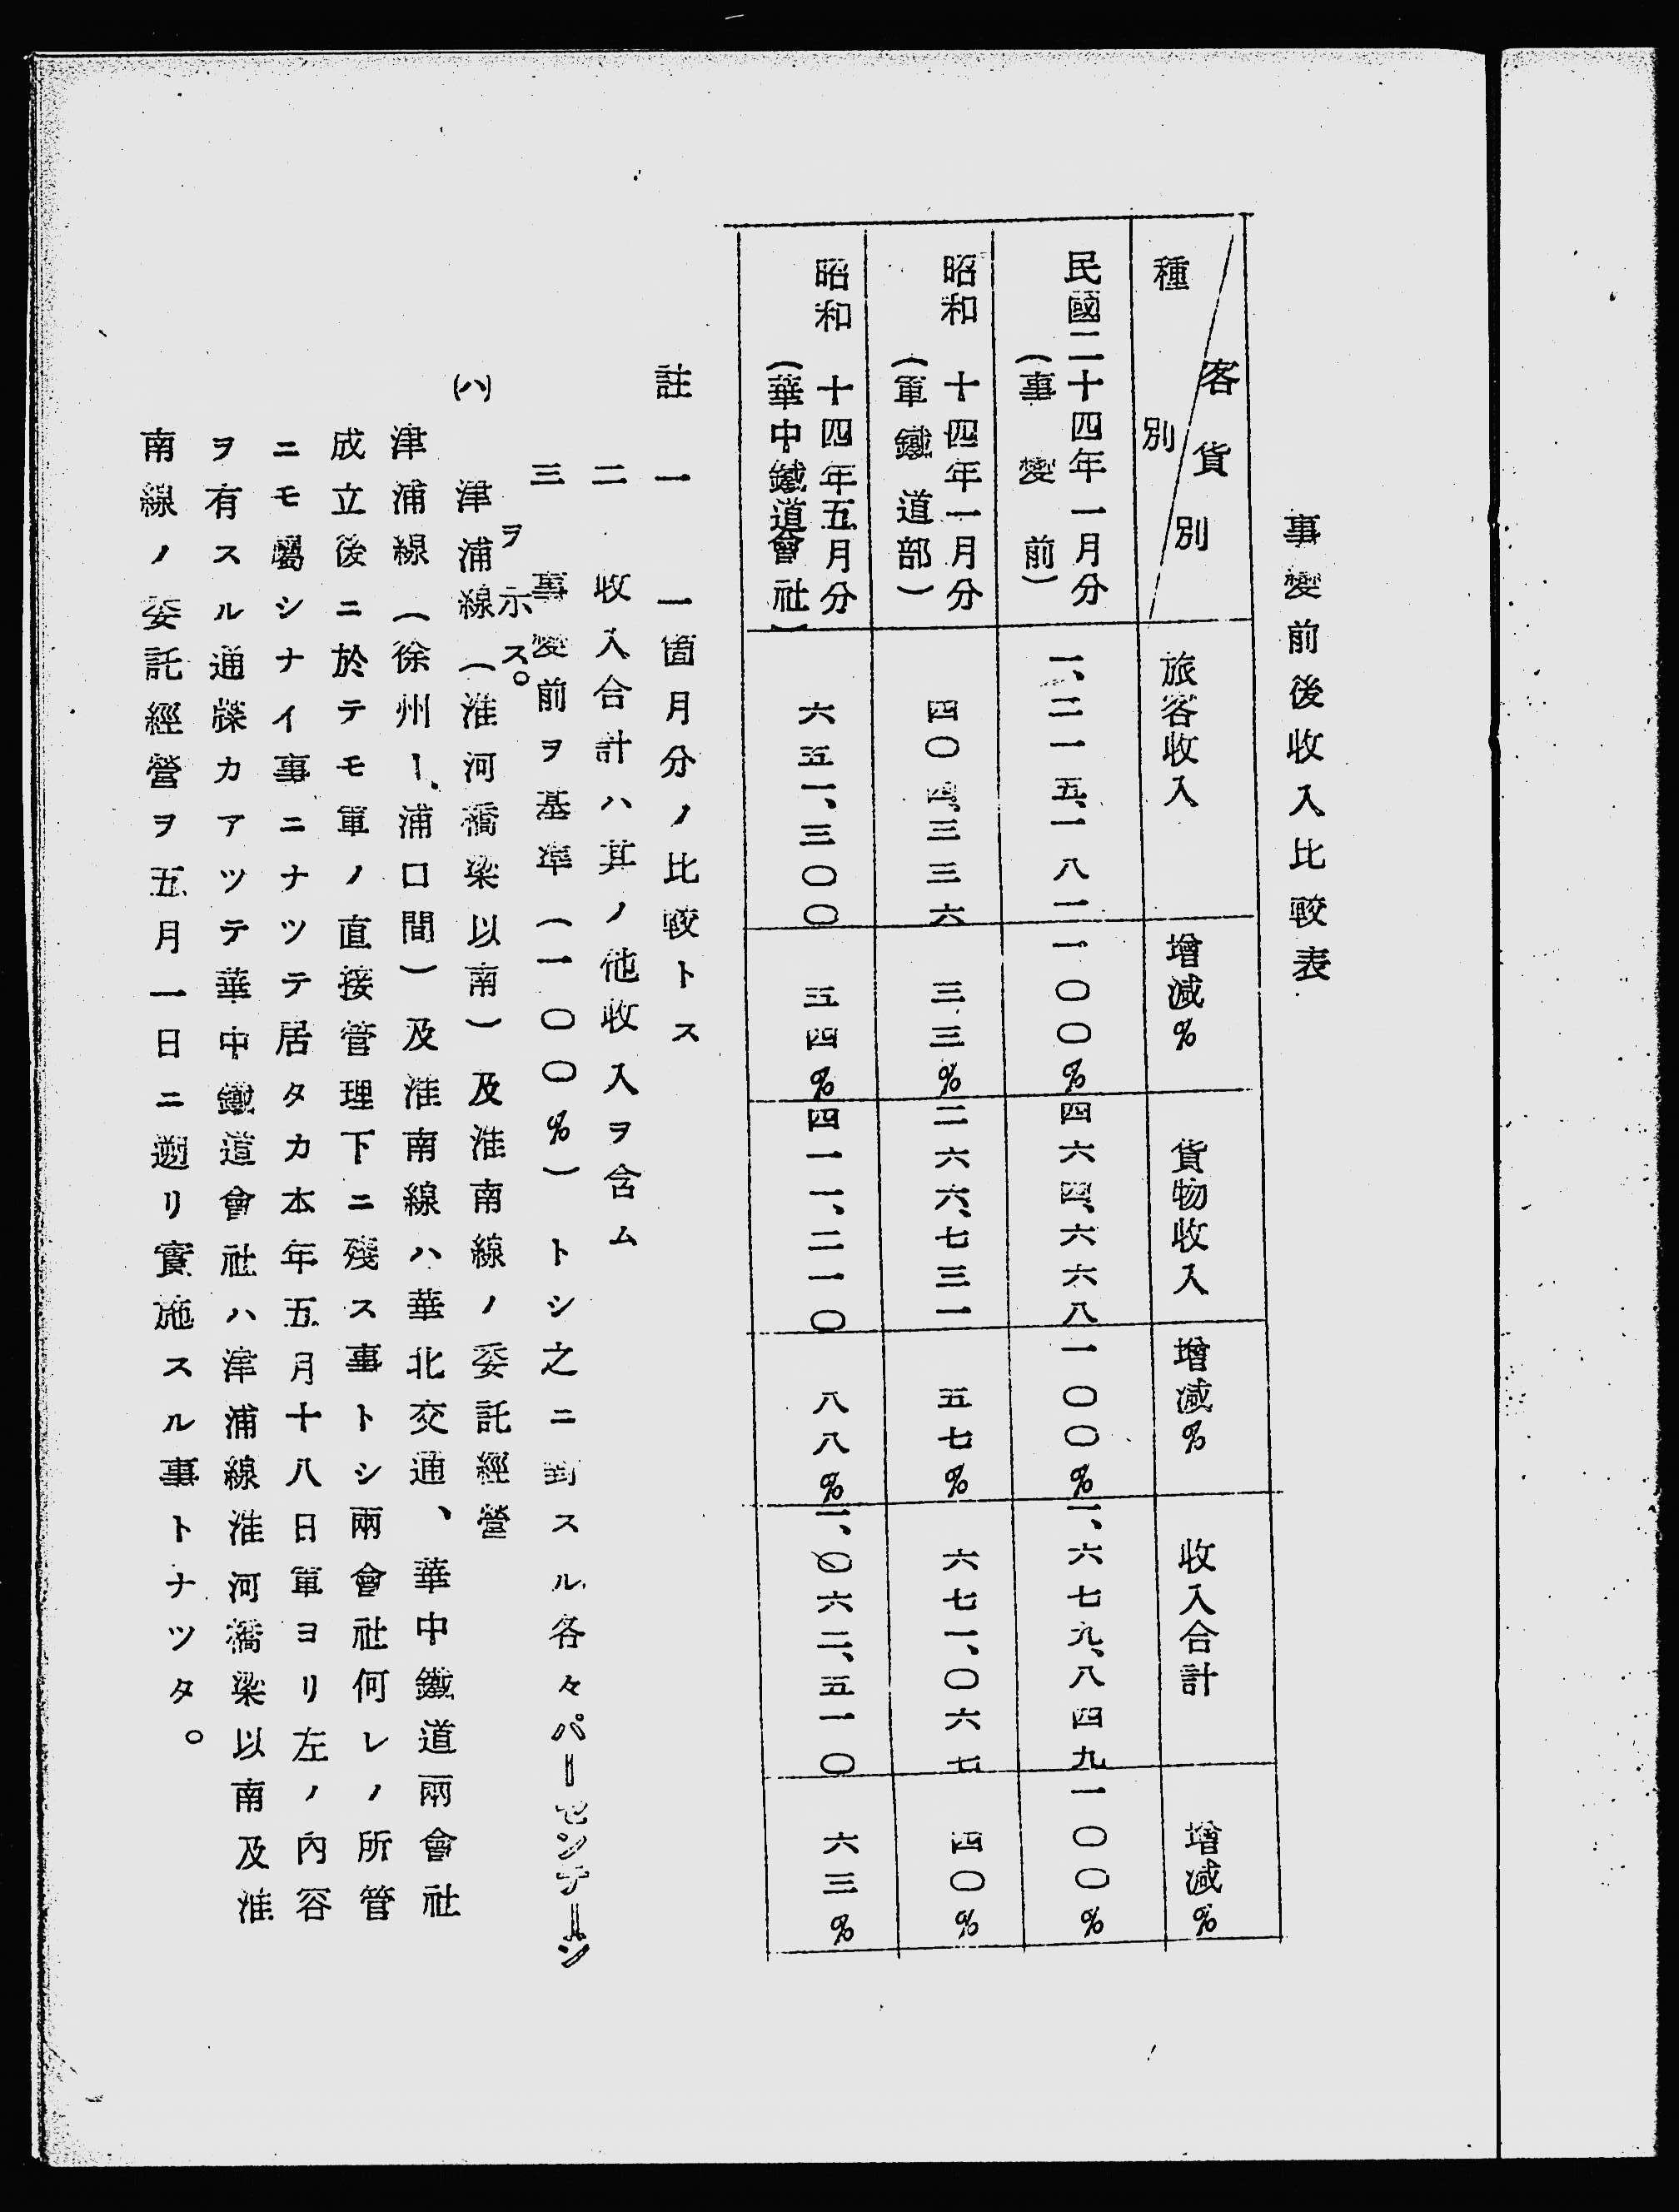 事變前後收入比較表
客貨別
種別
旅客收入
增減%
貨物收入
增減%
收入合計
增減%
民國二十四年一月分
(事變前)
一、二一五、一八一
一〇〇%
四六四、六六八
一〇〇%
一、六七九、八四九
一〇〇%
昭和十四年一月分
(軍鐵道部)
四〇四、三三六
三三%
二六六、七三一
五七%
六七一、〇六七
四〇%
昭和十四年五月分
(華中鐵道會社)
六五一、三〇〇
五四%
四一一、二一〇
八八%
一、〇六二、五一〇
六三%
註 一 一箇月分ノ比較トス
二 收入合計ハ其ノ他收入ヲ含ム
三 事變前ヲ基準(一〇〇%)トシ之ニ對スル各々パーセンテーシ
ヲ示ス。
(ハ) 津浦線(淮河橋梁以南)及淮南線ノ委託經營
津浦線(徐州ー浦口間)及淮南線ハ華北交通、華中鐵道兩會社
成立後ニ於テモ軍ノ直接管理下ニ殘ス事トシ兩會社何レノ所管
ニモ屬シナイ事ニナツテ居タカ本年五月十八日軍ヨリ左ノ內容
ヲ有スル通牒カアツテ華中鐵道會社ハ津浦線淮河橋梁以南及淮
南線ノ委託經營ヲ五月一日ニ遡リ實施スル事トナツタ。